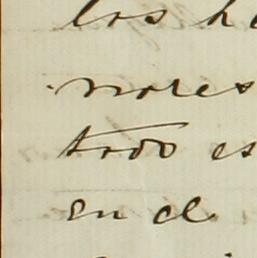 los h
nores
todo es
En el